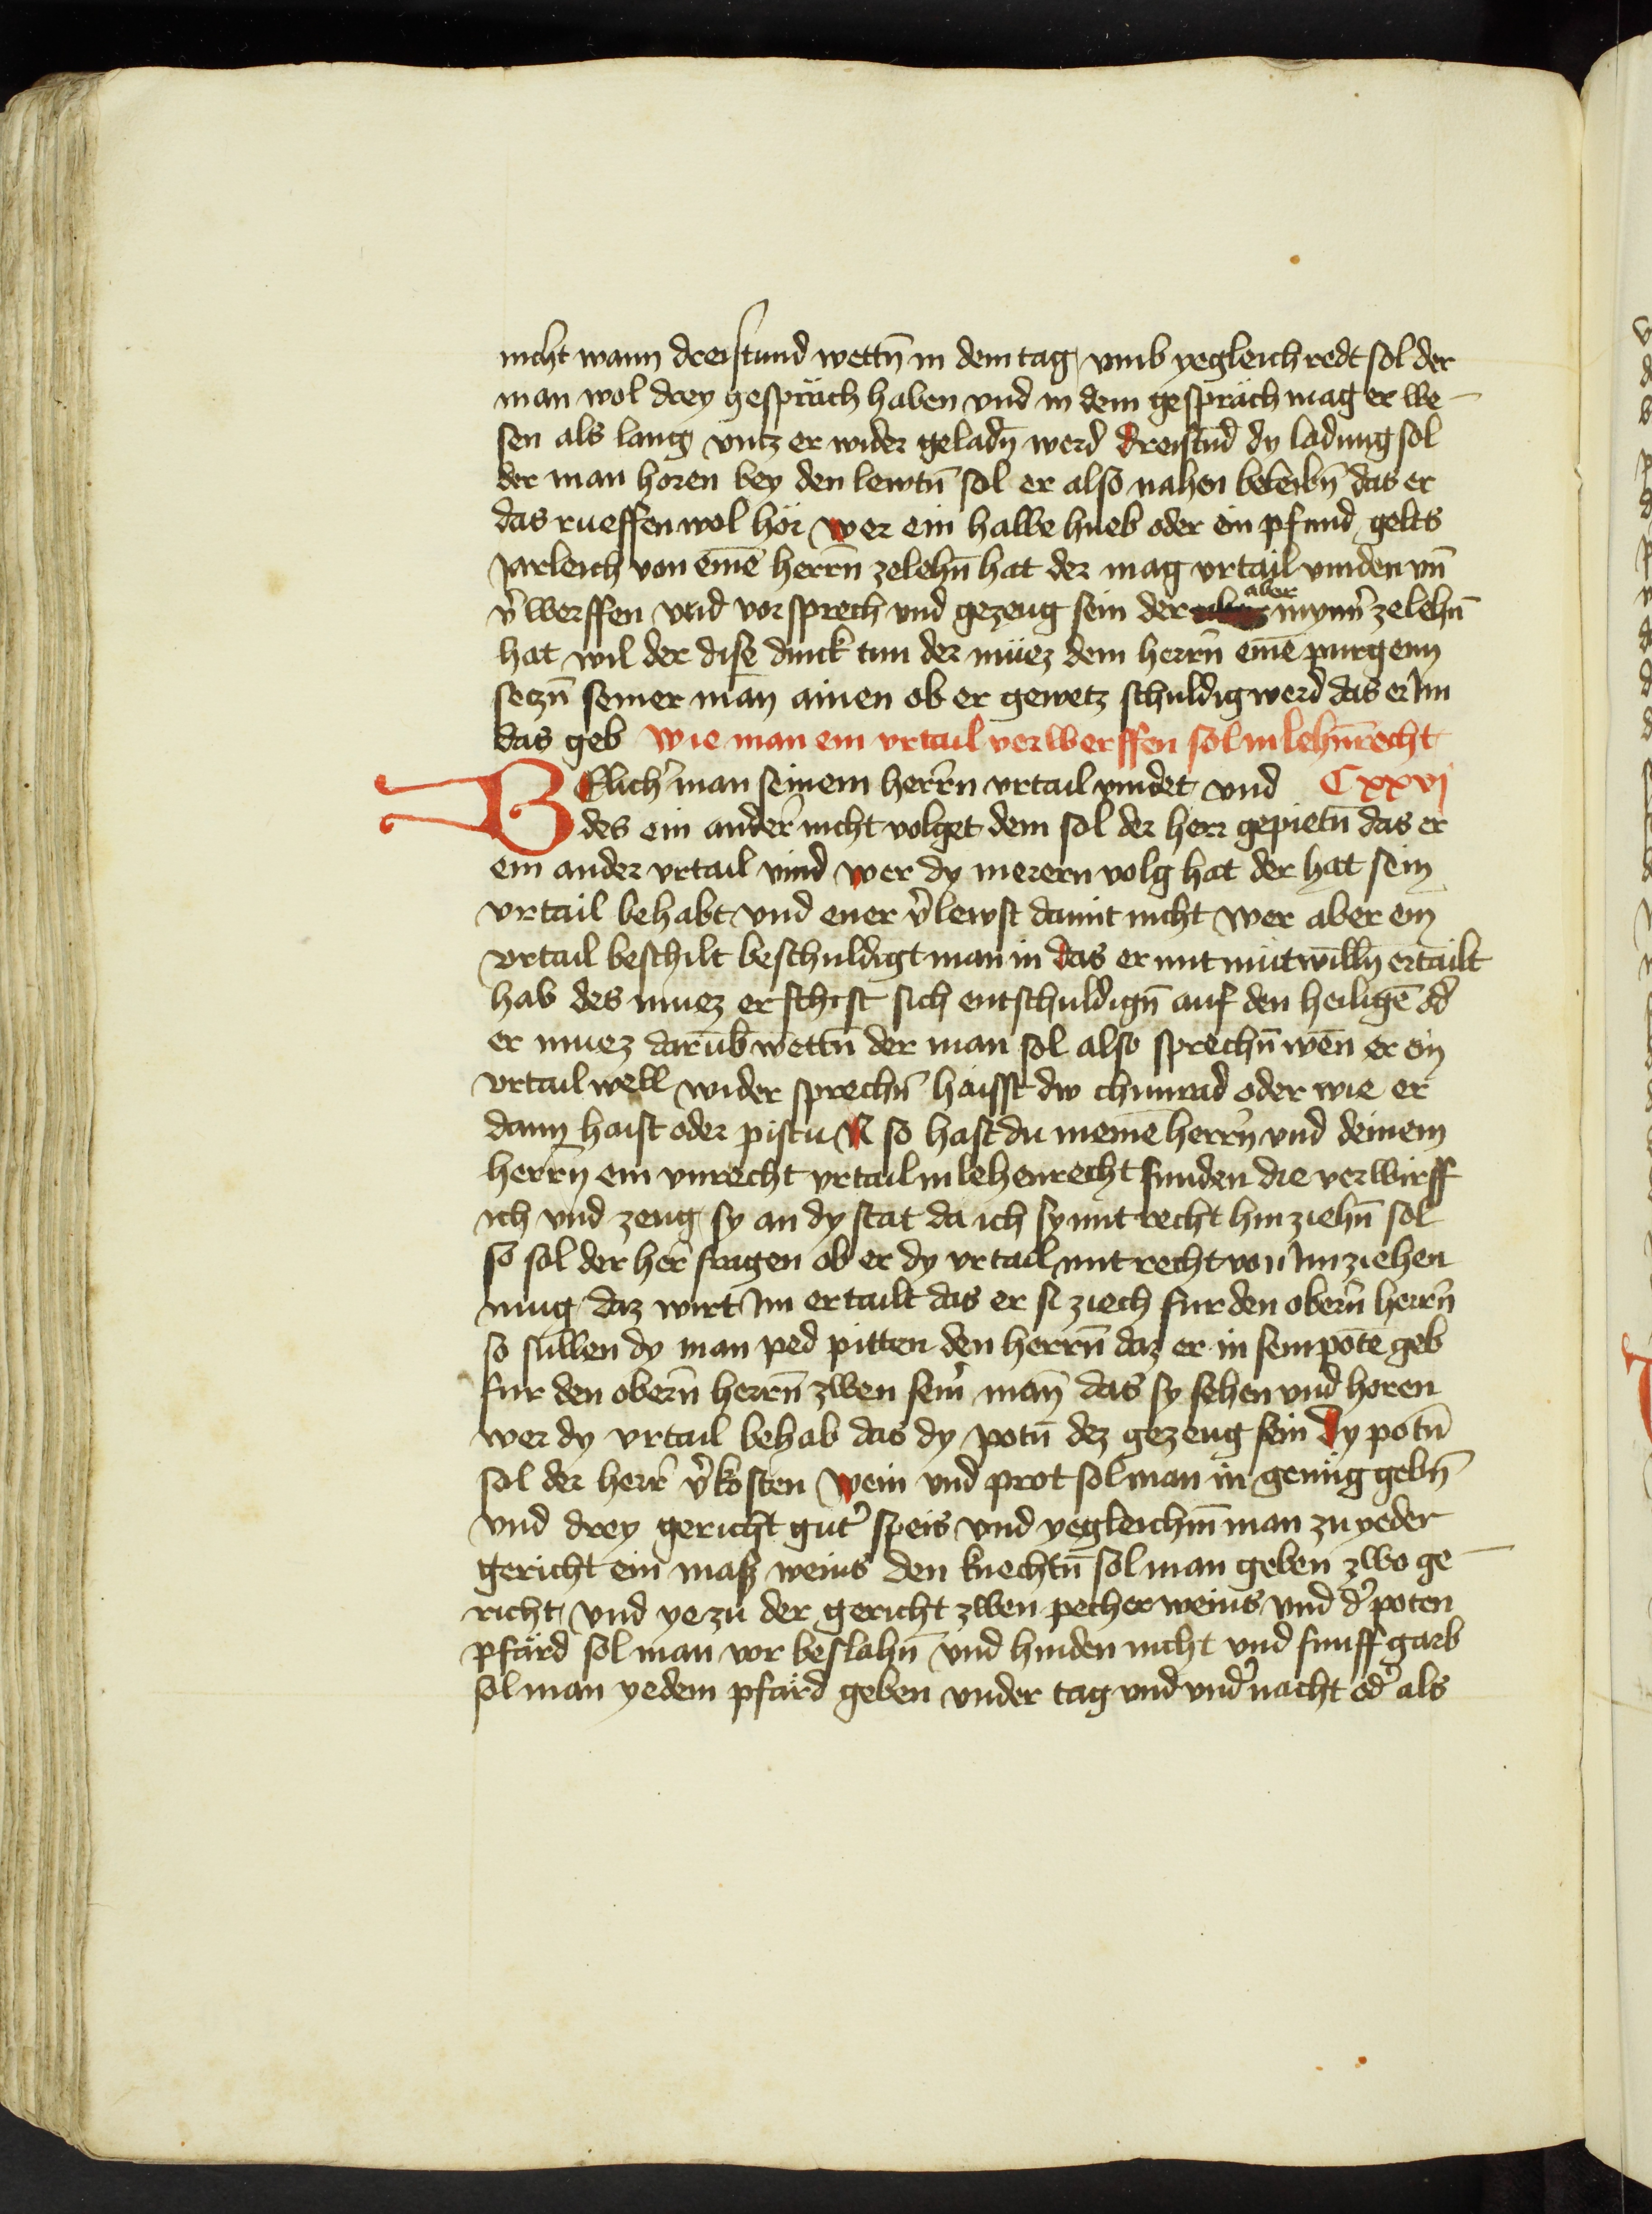 nicht wann dreistund wettn̄ in dem tag vmb yegleich redt sol der
man wol drey gespräch haben vnd in dem gespräch mag er we-
sen als lang vntz er wider geladn̄ werd dreistūd dy ladung sol
der man horen bey den lewtn̄ sol er also nahen beleibn̄ das er
das rueffen wol hör wer ein halbe hueb oder ein pfund gelts
Jarleich von eine͞ herrn̄ zelehn̄ hat der mag vrtail vinden vn̄
v̉werffen vnd vorsprech vnd gezeug sein der aber mynn̉ zelehn̄
hat wil der dise dinck tun der müez dem herrn̄ eine͞ purgenn
seczn̄ seiner man̄ ainen ob er gewetz schuldig werd das er Im
das geb wie man ein vrtail verwerffen sol in lehn̄recht
WElich̉ man seinem herrn̄ vrtail vindet vnd Cxxvj
des ein ander̉ nicht volget dem sol der herr gepietn̄ das er
ein ander vrtail vind wer dy merern volg hat der hat sein
vrtail behabt vnd ener v̉lewst damit nicht wer aber ein
vrtail beschilt beschuldigt man in das er mit mütwilln̄ ertailt
hab des muez er sich entschuldign̄ auf den heilige͞ od̉
er muez darūb wettn̄ der man sol also sprechn̄ wen̄ er ein
vrtail well wider sprechn̄ haisst dw chunrad oder wie er
dann haist oder pistu N so hast du meine͞ herrn̄ vnd deinem
herrn̄ ein vnrecht vrtail in lehenrecht funden die verwirff
ich vnd zeug sy an dy stat da ich sy mit recht hin ziehn̄ sol
so sol der her̉ fragen ob er dy vrtail mit recht von Im ziehen
mug daz wirt Im ertailt das er si ziech fur den obern̄ herrn̄
so sullen dy man ped pitten den herrn̄ daz er in sein pote geb
fur den obern̄ herrn̄ zwen sein̉ man̄ das sy sehen vnd horen
wer dy vrtail behab das dy potn̄ dez gezeug sein Dy potn̄
sol der herr̉ v̉kosten wein vnd prot sol man in genüg gebn̄
vnd drey gericht gut̉ speis vnd yegleichm̄ man zu yeder
gericht ein mass weins den knechtn̄ sol man geben zwo ge-
richt vnd ye zu der gericht zwen pecher weins vnd d̉ poten
pfärd sol man vor beslahn̄ vnd hinden nicht vnd funff garb
sol man yedem pfärd geben vnder tag vnd vnd̉ nacht od̉ als